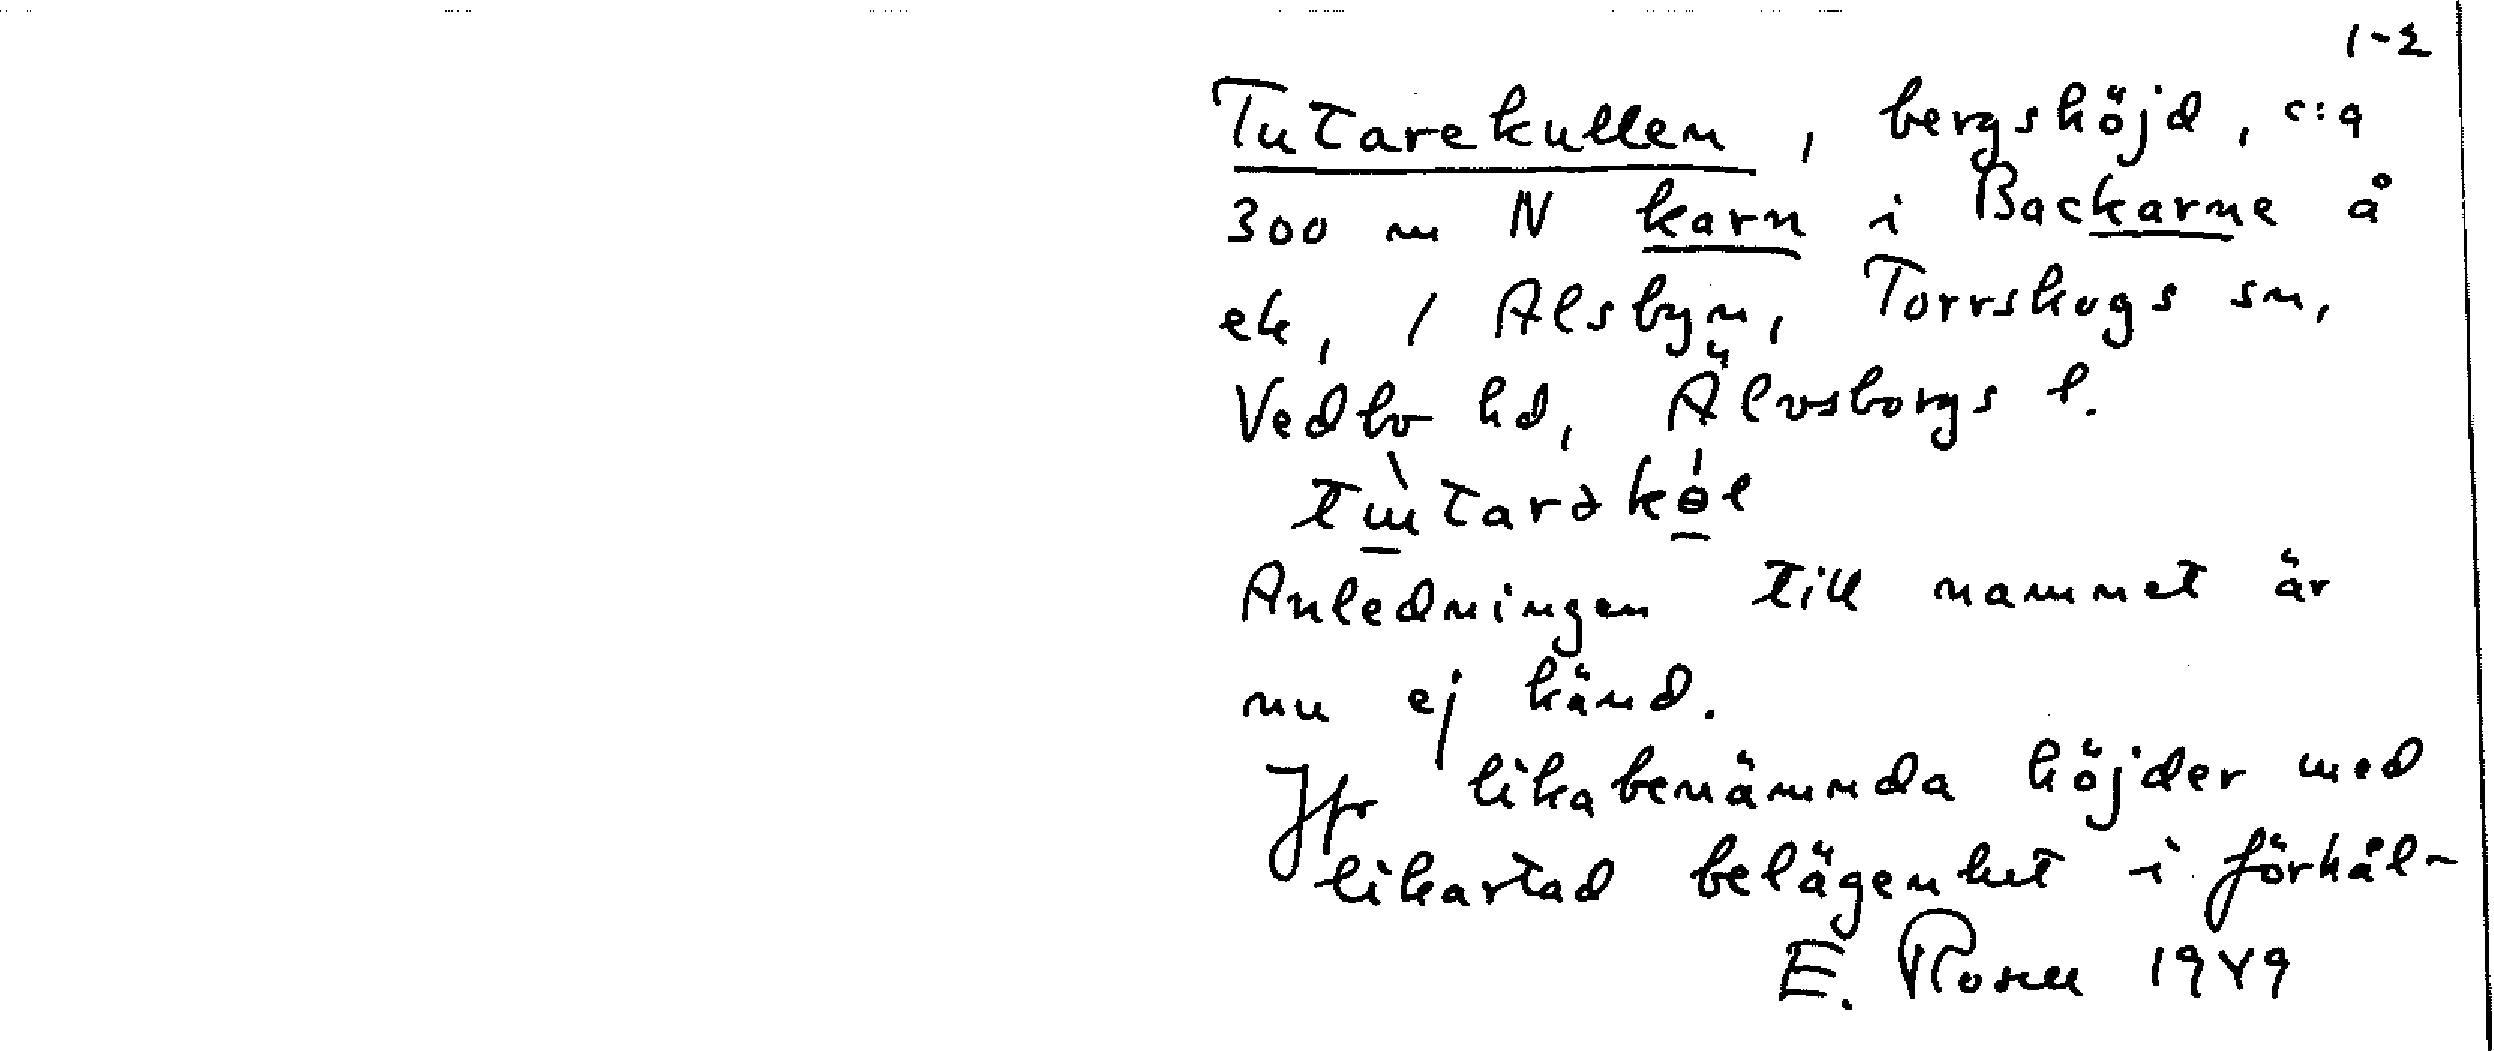 1-2
Tutarekullen, bergshöjd, c:a
300 m N karn i Backarne å
ek, / Alsbyn, Torrskogs sn,
Vedbo hd, Älvsborgs l.
Anledningen till namnet är
nu ej känd.
Jfr likabenämnda höjder med
likartad belägenhet i förhål-
E. Rosell 1949